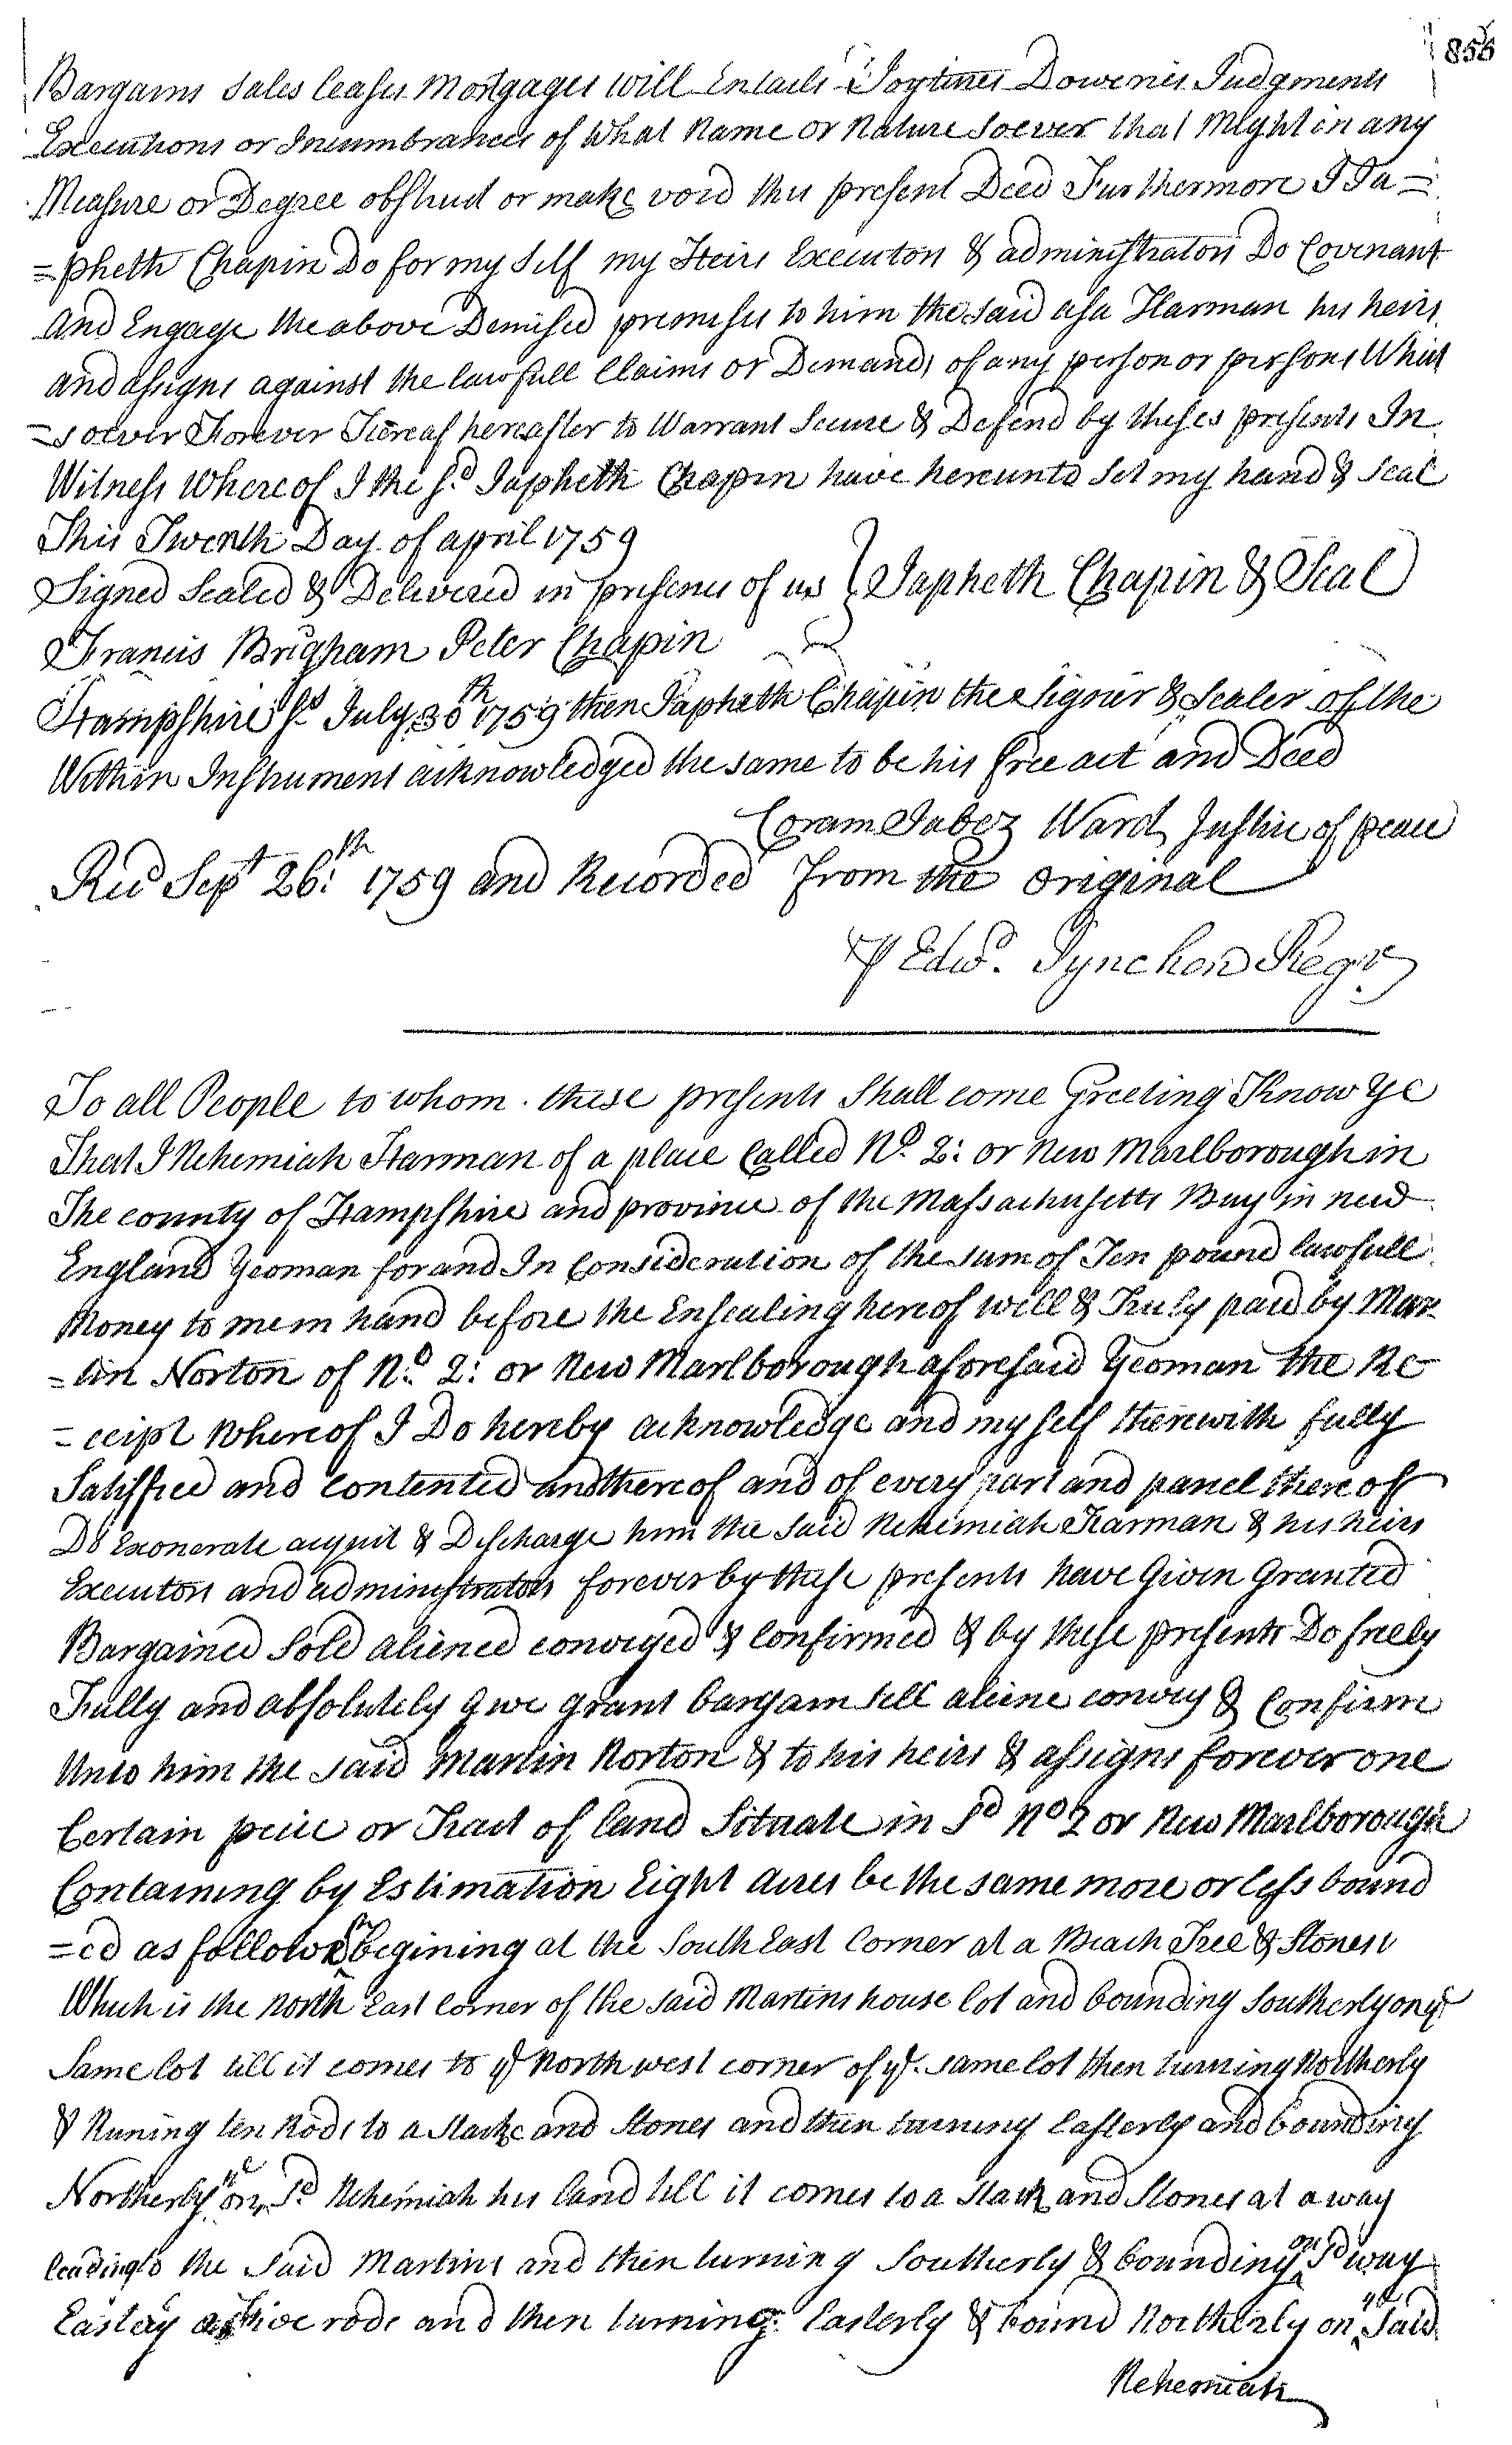 855
Bargains Sales leases Mortgages Will Entails Joyntures Doweries Judgments
Executions or Incumbrances of What Name or Nature Soever that Might in any
Measure or Degree obstruct or make void this present Deed Furthermore I Ja=
=pheth Chapin Do for my Self my Heirs Executors & administrators Do Covenant
And Engage the above Demised premises to him the said asa Harman his heirs
and assigns against the lawfull Claims or Demands of any person or persons What
=soever Forever Hereaf hereafter to Warrant Secure & Defend by theses presents In
Witness Whereof I the sd Japheth Chapin have hereunto Set my hand & Seal
This Twenth Day of april 1759
Signed Sealed & Delivered in presence of us } Japheth Chapin & Seal
Francis Brigham Peter Chapin
Hampshire ss July 30th 1759 then Japheth Chapin the Signer & Sealer of the
Within Instrument acknowledged the same to be his free act and Deed
Coram Jabez Ward Justice of peace
Recd Sept 26th 1759 and Recorded From the original
⅌ Edwd. Pynchon Regr
To all People to whom these presents Shall come Greeting Know Ye
That I Nehemiah Harman of a place Called No 2: or New Marlborough in
The county of Hampshire and province of the Massachusetts Bay in new
England Yeoman for and In Consideration of the sum of Ten pound lawfull
Money to me in hand before the Ensealing hereof well & Truly paid by Mar
=tin Norton of No 2: or New Marlborough aforesaid Yeoman the Re
=ceipt whereof I Do hereby acknowledge and my self therewith fully
Satisfied and contented and thereof and of every part and parcel thereof
Do Exonerate acquit & Discharge him the said Nehemiah Harman & his heirs
Executors and administrators forever by these presents have Given Granted
Bargained Sold aliened conveyed & Confirmed & by these presents Do freely
Fully and absolutely give grant bargain sell aliene convey & Confirm
Unto him the said Martin Norton & to his heirs & assigns forever one
Certain peice or Tract of land Situate in sd No 2 or New Marlborough
Containing by Estimation Eight acres be the same more or less bound
=ed as follows begining at the South East Corner at a Beach Tree & Stones
Which is the North East Corner of the said Martins house lot and bounding Southerly on ye
Same lot till it comes to ye North west corner of ye same lot then turning Northerly
& Runing ten Rods to a Stacke and Stones and then turning Easterly and bounding
Northerly on ye sd Nehemiah his land till it comes to a Stack and Stones at a way
leading to the said Martins and then turning Southerly & bounding on sd way
Easterly five rods and then turning Easterly & bound Northerly on ye said
Nehemiah